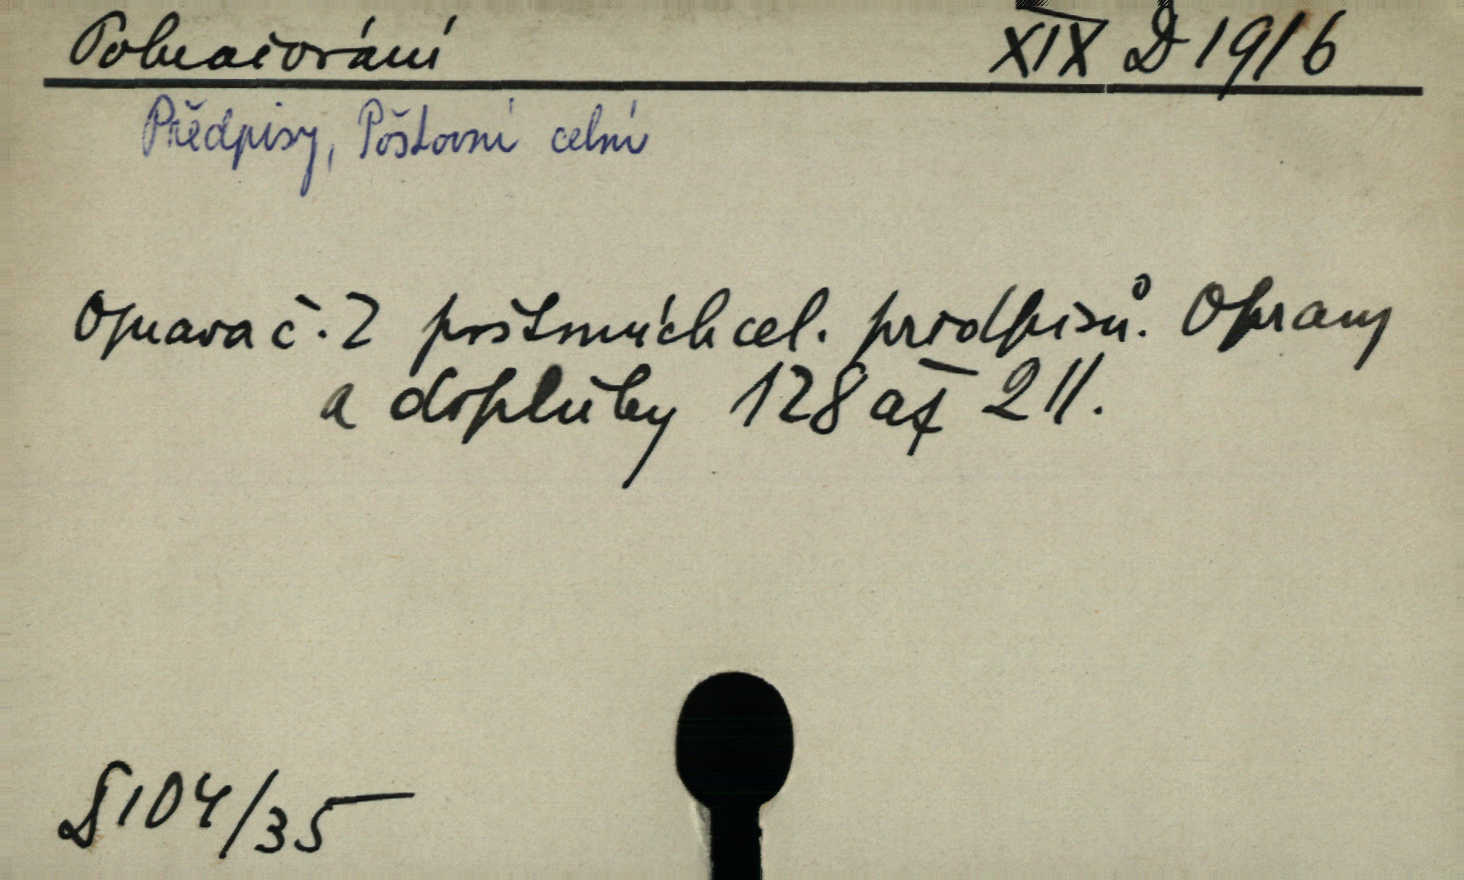 Pokračování XIX D 19/6
Předpisy, Poštovní celní
Oprava č. 2 poštovních cel. předpisů. Opravy
a doplňky 128 až 211.
D 104/35